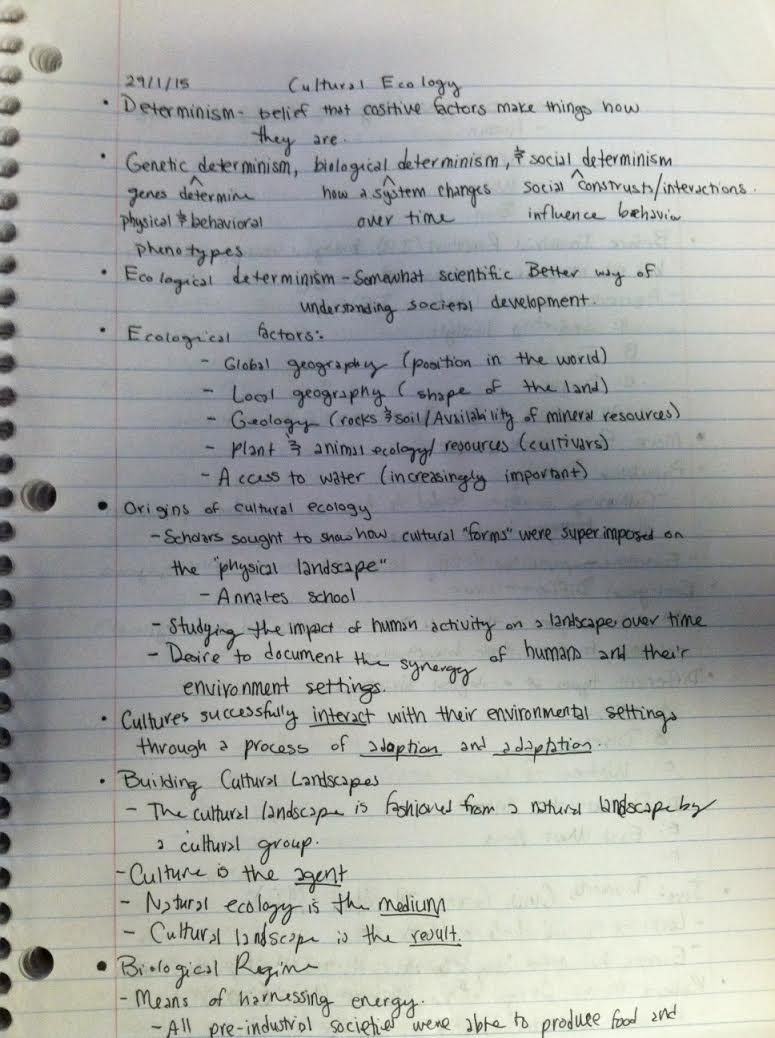 29/1/15 Cultural Ecology
• Determinism - belief that cositive factors make things how
they are.
• Genetic determinism, biological determinism, & social determinism
genes determine how a system changes social constructs/interactions.
physical & behavioral over time influence behavior
phenotypes
• Ecological determinism - Somewhat scientific Better way of
understanding societal development.
• Ecological factors:
- Global geography (position in the world)
- Local geography (shape of the land)
- Geology (rocks & soil/Availability of mineral resources)
- Plant & animal ecology/resources (cultivars)
- Access to water (increasingly important)
• Origins of cultural ecology
- Scholars sought to show how cultural "forms" were superimposed on
the "physical landscape"
- Annales school
- Studying the impact of human activity on a landscape over time
- Desire to document the synergy of humans and their
environment settings.
• Cultures successfully interact with their environmental settings
through a process of adoption and adaptation.
• Building Cultural Landscapes
- The cultural landscape is fashioned from a natural landscape by
a cultural group.
- Culture is the agent
- Natural ecology is the medium
- Cultural landscape is the result.
• Biological Regime
- Means of harnessing energy.
- All pre-industrial societies were able to produce food and